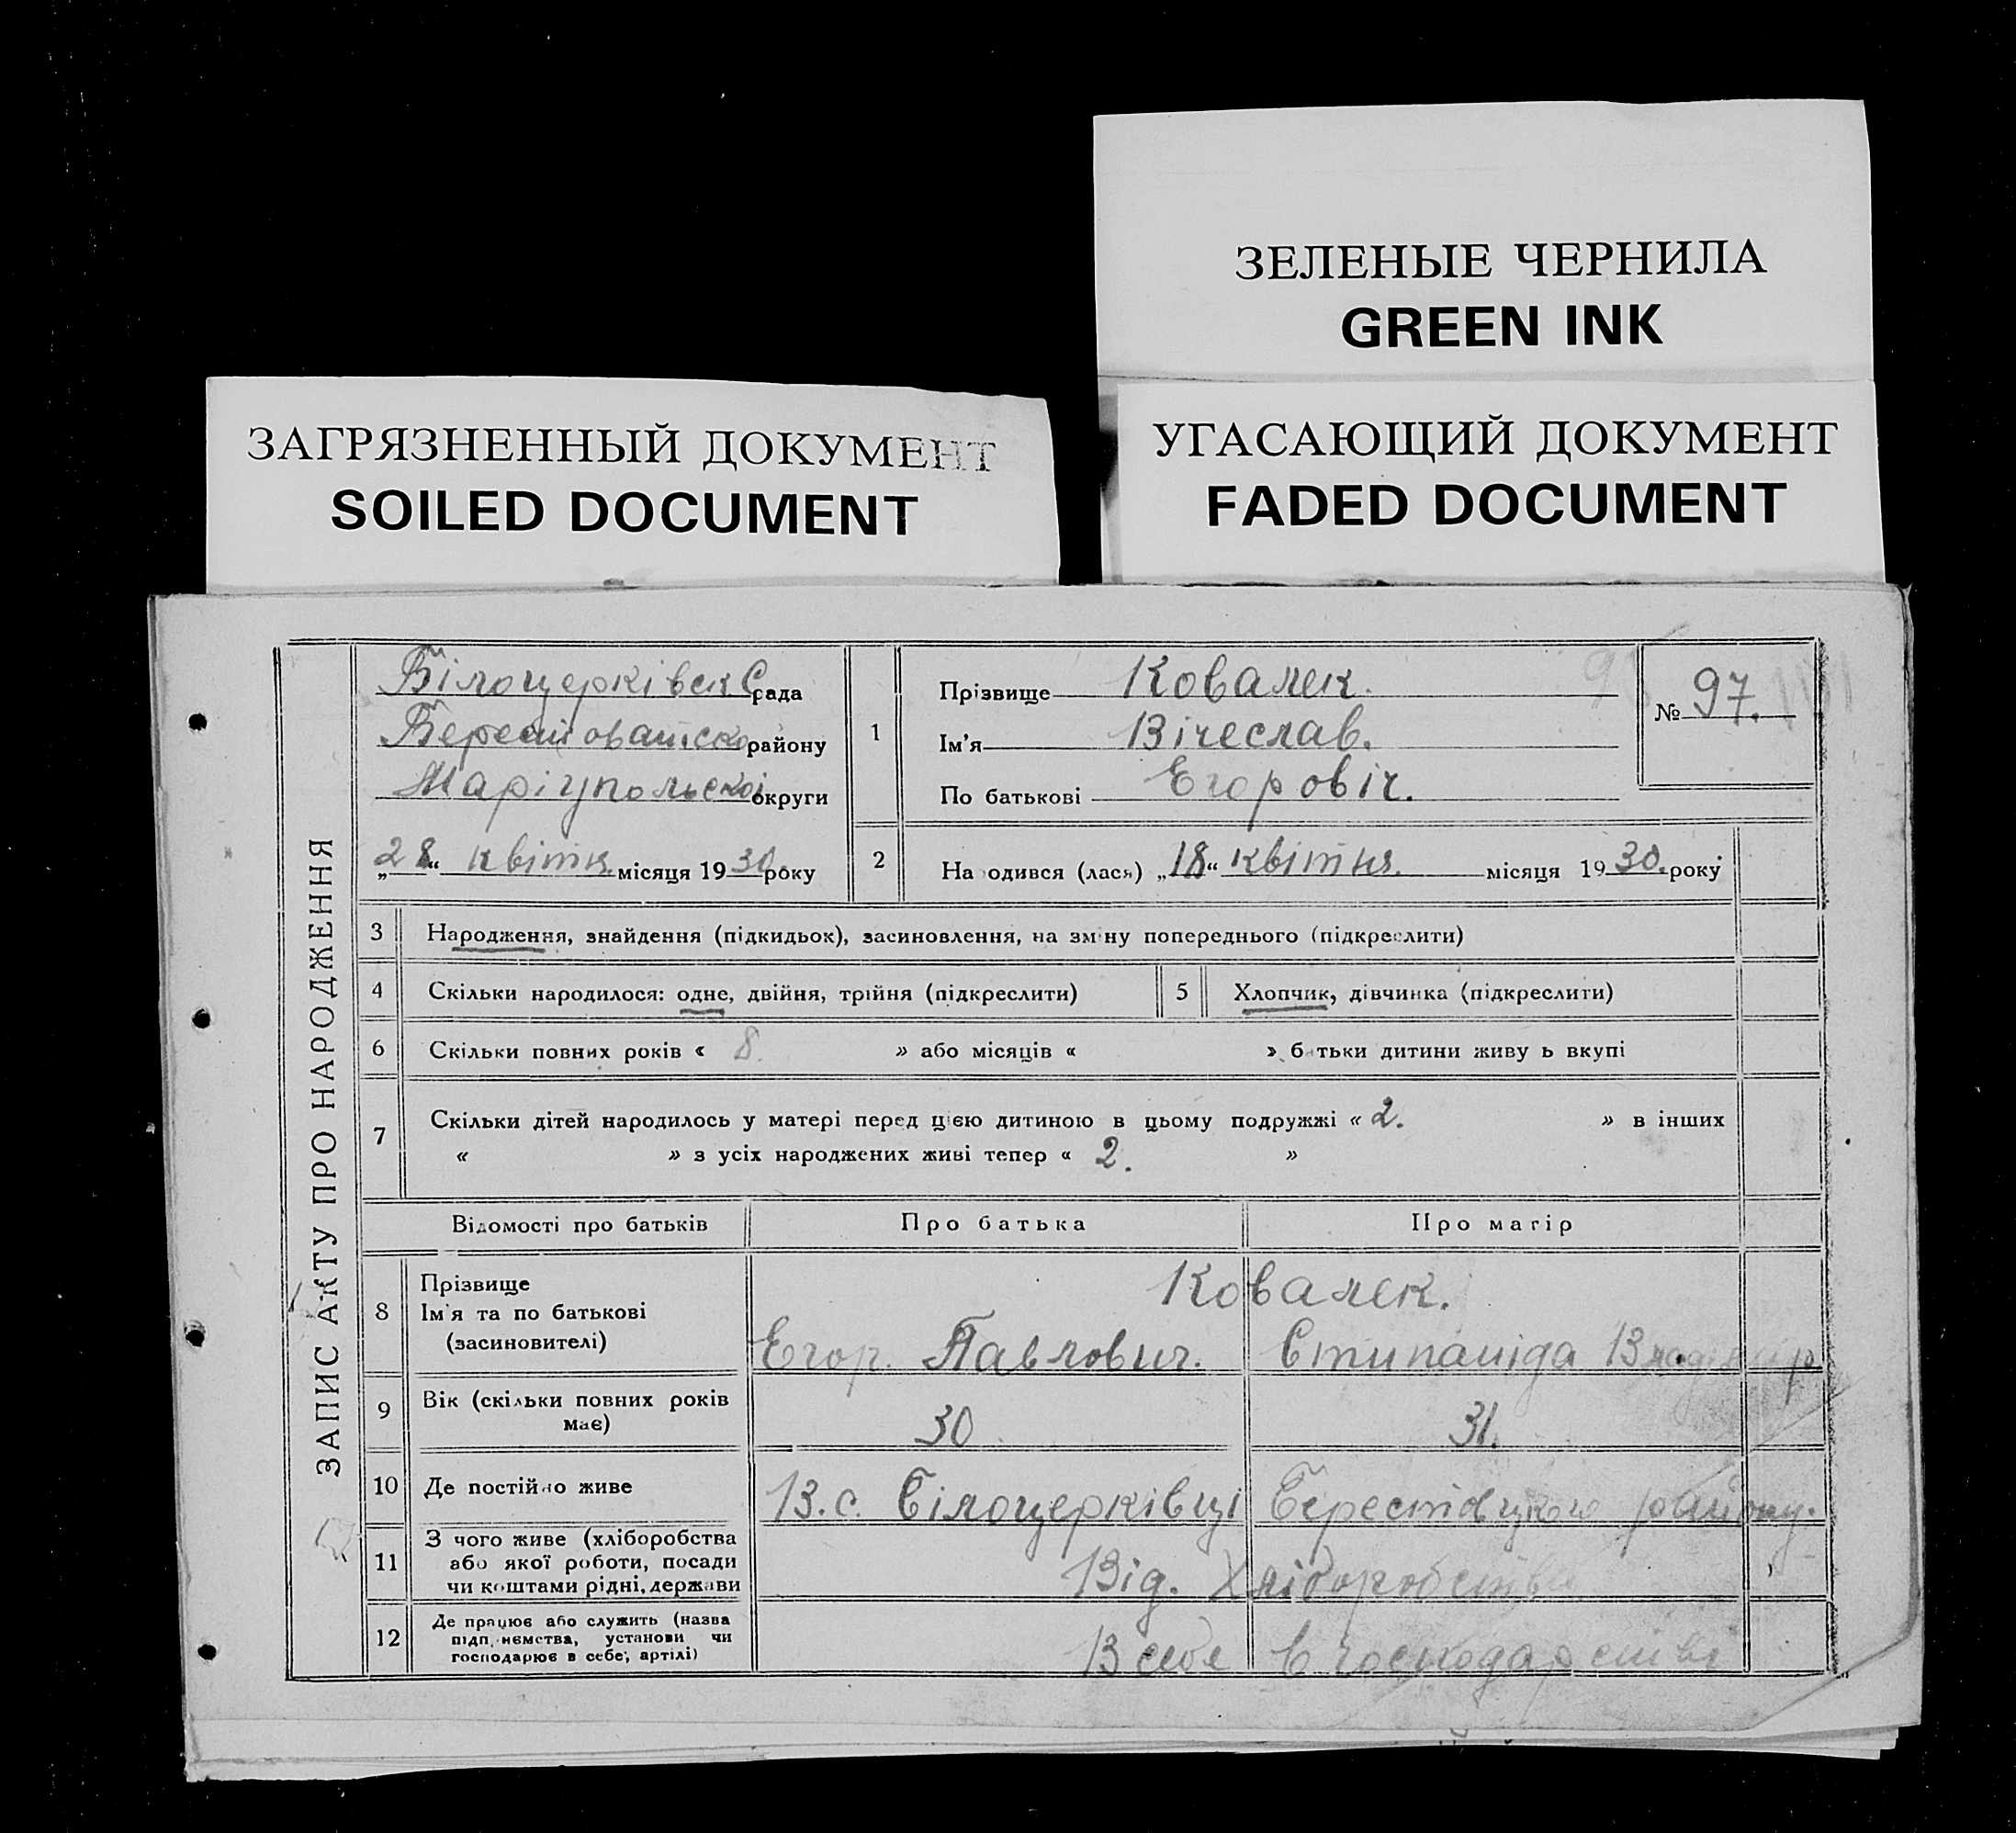 ЗЕЛЕНЫЕ ЧЕРНИЛА
GREEN INK
ЗАГРЯЗНЕННЫЙ ДОКУМЕНТ
SOILED DOCUMENT
УГАСАЮЩИЙ ДОКУМЕНТ
FADED DOCUMENT
ЗАПИС АКТУ ПРО НАРОДЖЕННЯ
Білоцерківск С рада
району
Маріупольскоі округи
„28“ квітня місяця 1930 року
1
Прізвище Ковалек.
Ім'я Вічеслав.
По батькові Егоровіч.
№ 97.
2
На одився (лася) „18“ квітня. місяця 1930. року
3 Народження, знайдення (підкидьок), засиновлення, на зміну попереднього (підкреслити)
4 Скільки народилося: одне, двійня, трійня (підкреслити)
5 Хлопчик, дівчинка (підкреслити)
6 Скільки повних років « 8. » або місяців « » батьки дитини живу ь вкупі
7 Скільки дітей народилось у матері перед цією дитиною в цьому подружжі « 2. » в інших
« » з усіх народжених живі тепер « 2. »
Відомості про батьків Про батька Про матір
8 Прізвище
Ім'я та по батькові
(засиновителі)
Ковалек.
Егор. Павлович. Стипаніда
9 Вік (скільки повних років
має)
30 31.
10 Де постійно живе В. с. Білоцерківці району.
11 З чого живе (хліборобства
або якої роботи, посади
чи коштами рідні, держави
Від. Хліборобства
12 Де працює або служить (назва
підп. ємства, установи чи
господарює в себе, артілі)
В себе в господарстві